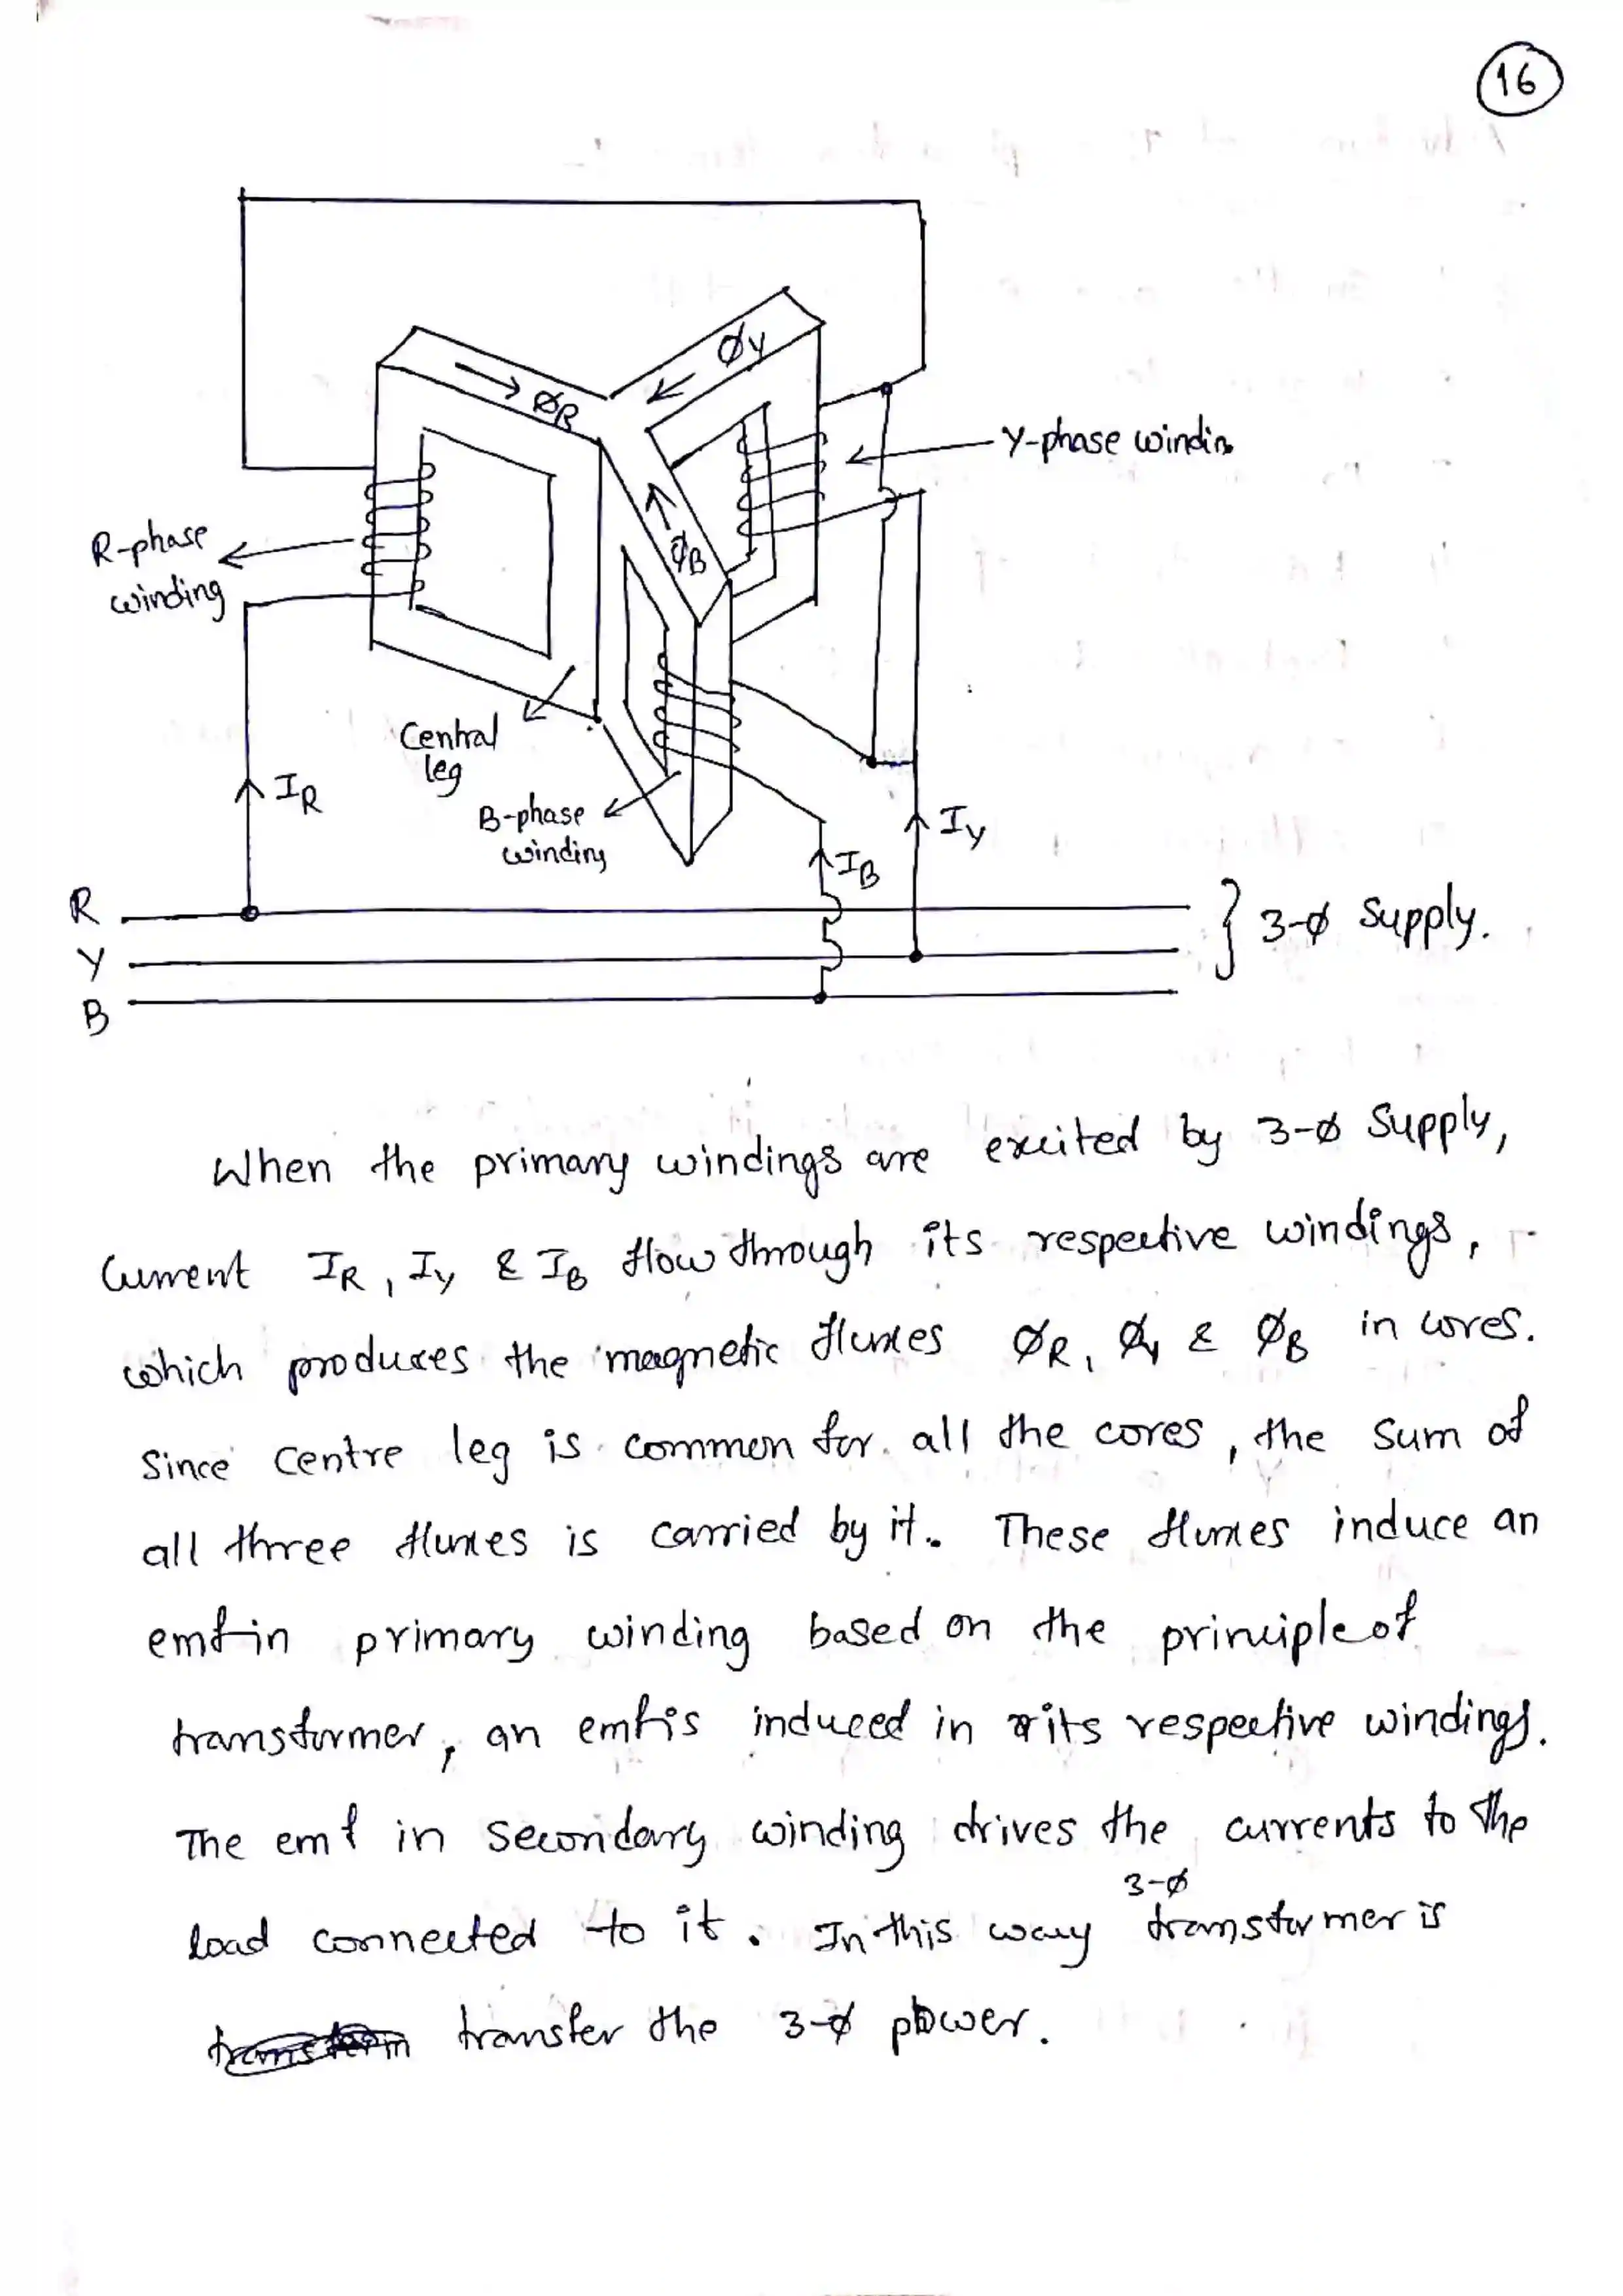 16
ØY
ØR
Y-phase windin
ØB
R-phase
winding
Central
leg
IR
B-phase
winding
IY
IB
R
Y
B
3-ø Supply.
When the primary windings are excited by 3-ø Supply,
Current IR, IY & IB flow through its respective windings,
which produces the magnetic fluxes ØR, ØY & ØB in cores.
Since Centre leg is common for all the cores, the Sum of
all three fluxes is carried by it. These fluxes induce an
emf in primary winding based on the principle of
transformer, an emf is induced in its respective windings.
The emf in Secondary winding drives the currents to the
3-ø
load connected to it. In this way transformer is
transfer the 3-ø power.